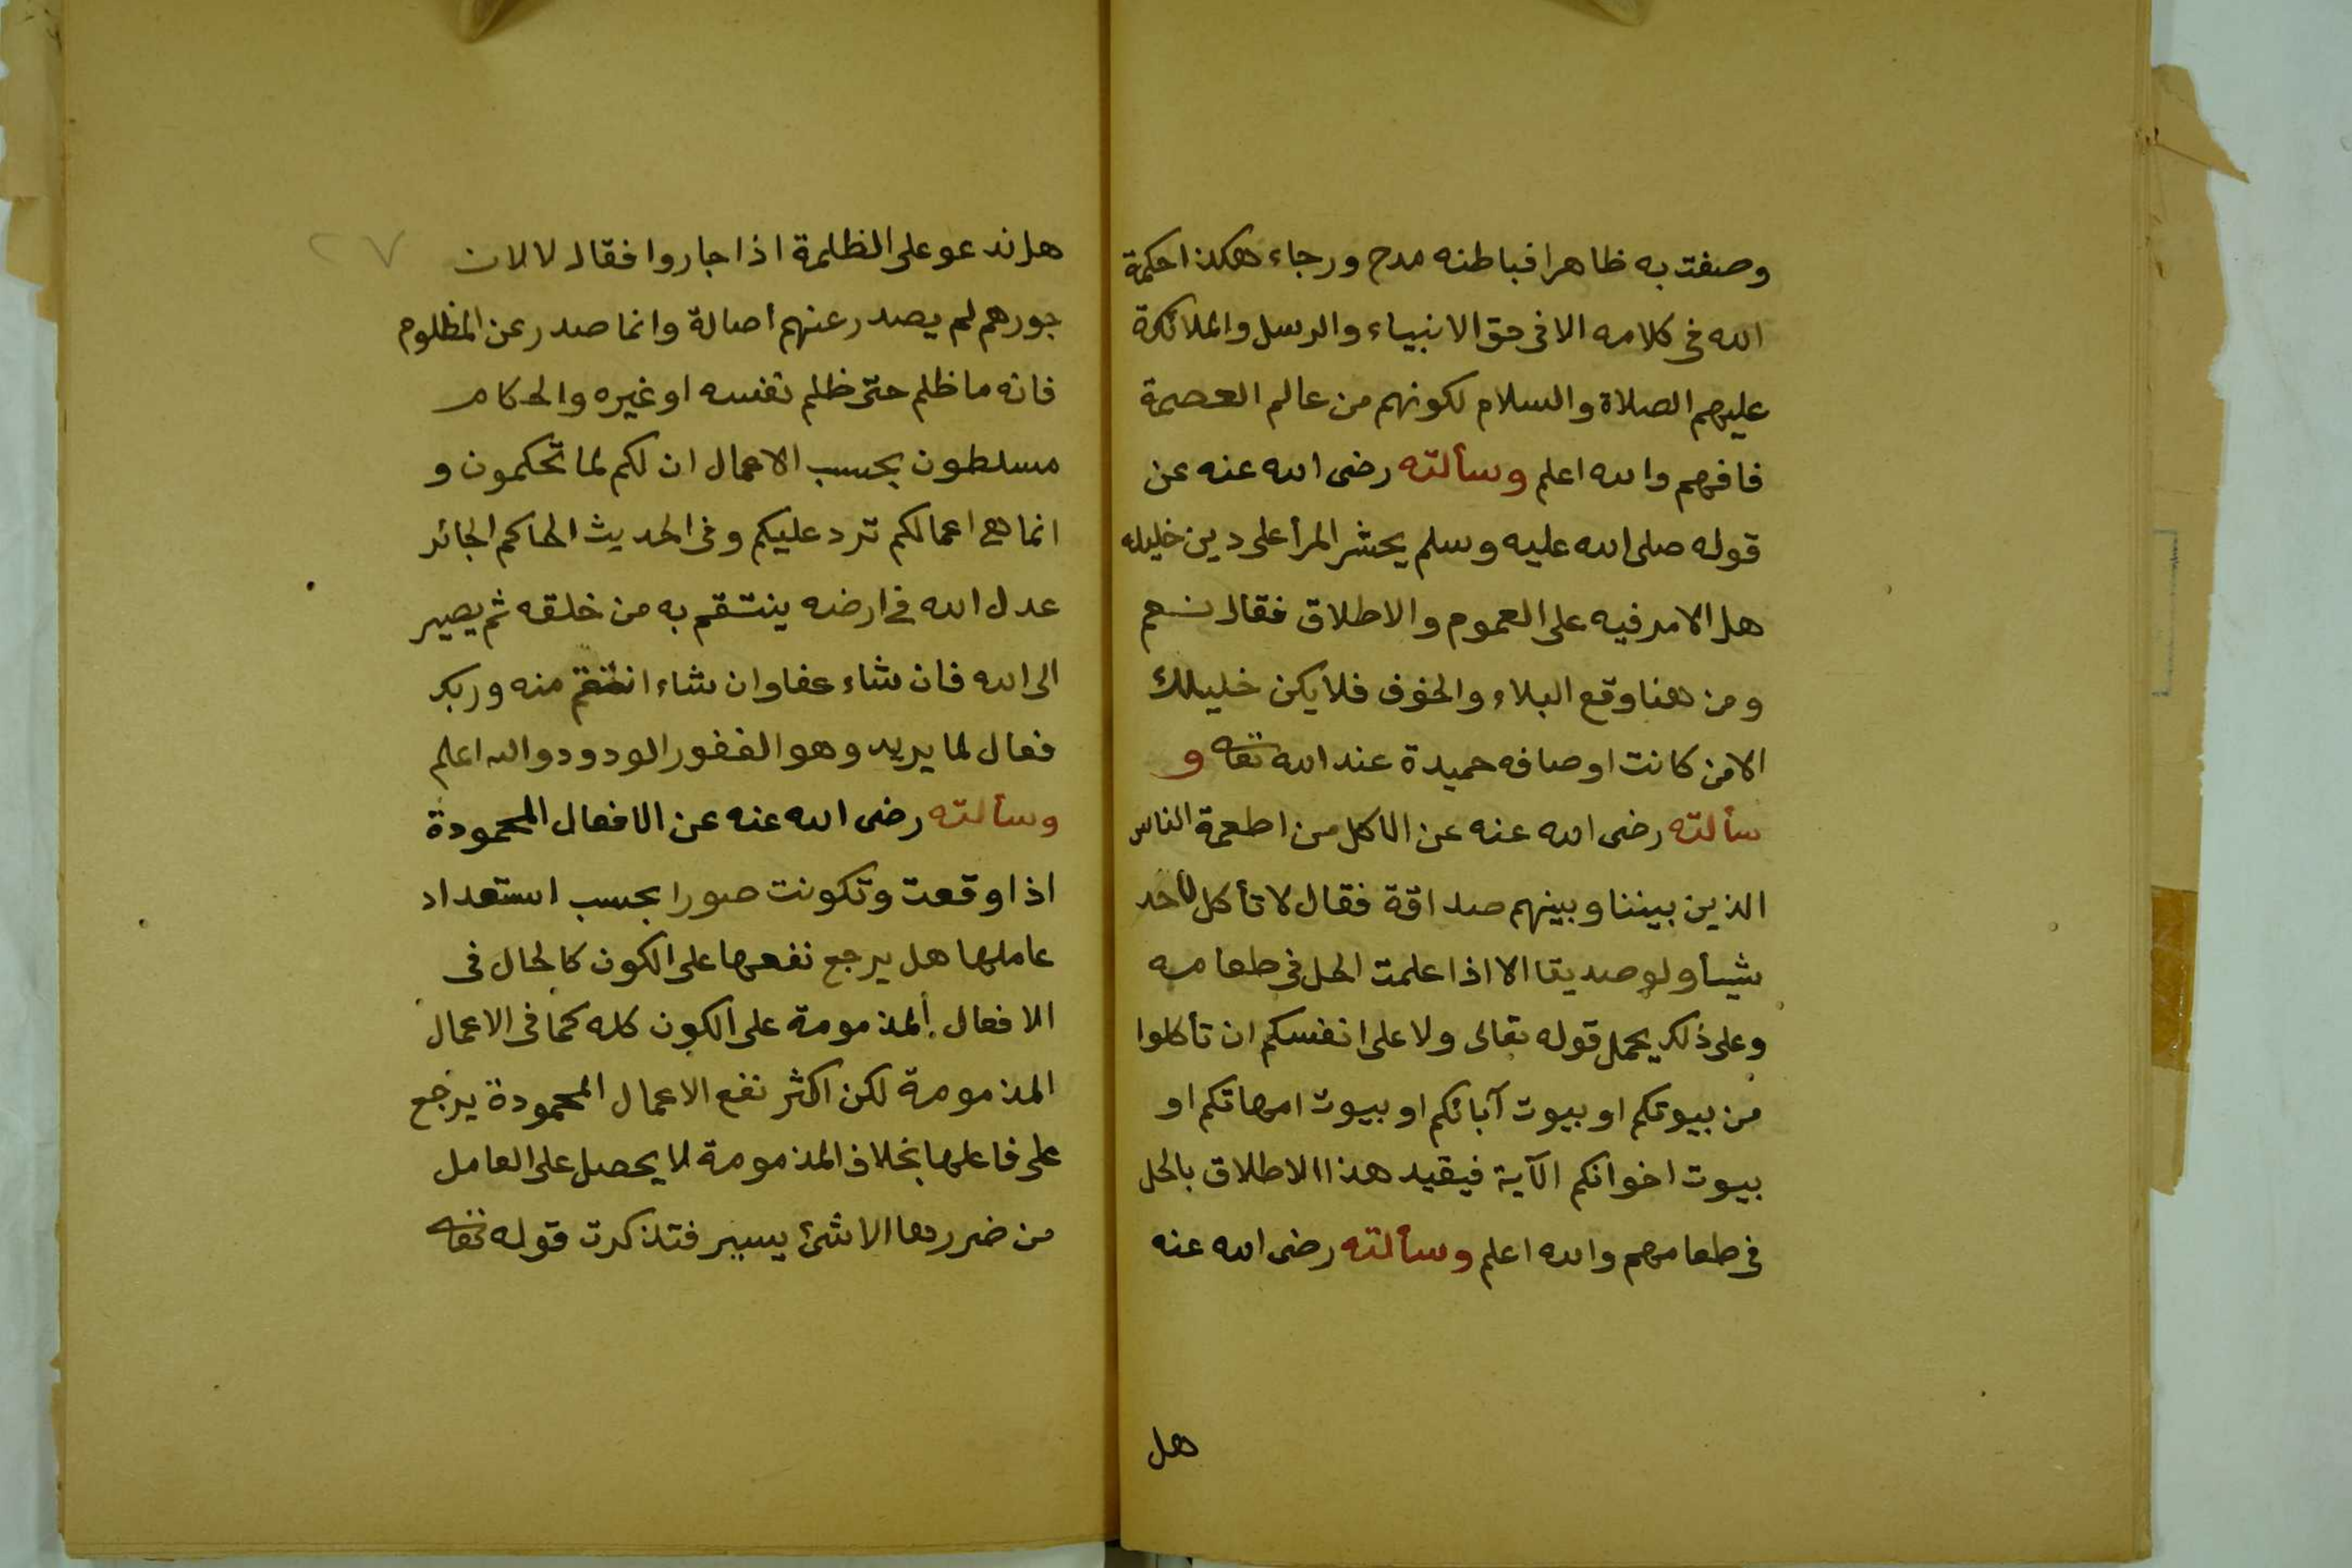 وصفت به ظاهرا فباطنه مدح ورجاء هكذا حكمة
الله فى كلامه الا فى حق الانبياء والرسل والملائكة
عليهم الصلاة والسلام لكونهم من عالم العصمة
فافهم والله اعلم وسألته رضى الله عنه عن
قوله صلى الله عليه وسلم يحشر المرأ على دين خليله
هل الامر فيه على العموم والاطلاق فقال نعم
ومن هنا وقع البلاء والخوف فلا يكن خليلك
الا من كانت اوصافه حميدة عند الله تعا و
سألته رضى الله عنه عن الاكل من اطعمة الناس
الذين بيننا وبينهم صداقة فقال لا تأكل لأحد
شيأ ولو صديقا الا اذا علمت الحل فى طعامه
وعلى ذلك يحمل قوله تعالى ولا على انفسكم ان تأكلوا
من بيوتكم او بيوت آبائكم او بيوت امهاتكم او
بيوت اخوانكم الآية فيقيد هذا الاطلاق بالحل
فى طعامهم والله اعلم وسألته رضى الله عنه
هل
٢٧
هل ندعو على الظلمة اذا جاروا فقال لا لان
جورهم لم يصدر عنهم اصالة وانما صدر عن المظلوم
فانه ما ظلم حتى ظلم نفسه او غيره والحكام
مسلطون بحسب الاعمال ان لكم لما تحكمون و
انما هى اعمالكم ترد عليكم وفى الحديث الحاكم الجائر
عدل الله فى ارضه ينتقم به من خلقه ثم يصير
الى الله فان شاء عفا وان شاء انتقم منه وربك
فعال لما يريد وهو الغفور الودود والله اعلم
وسألته رضى الله عنه عن الافعال المحمودة
اذا وقعت وتكونت صورا بحسب استعداد
عاملها هل يرجع نفعها على الكون كالحال فى
الافعال المذمومة على الكون كله كما فى الاعمال
المذمومة لكن اكثر نفع الاعمال المحمودة يرجع
على فاعلها بخلاف المذمومة لا يحصل على العامل
من ضررها الا شئ يسير فتذكرت قوله تعا